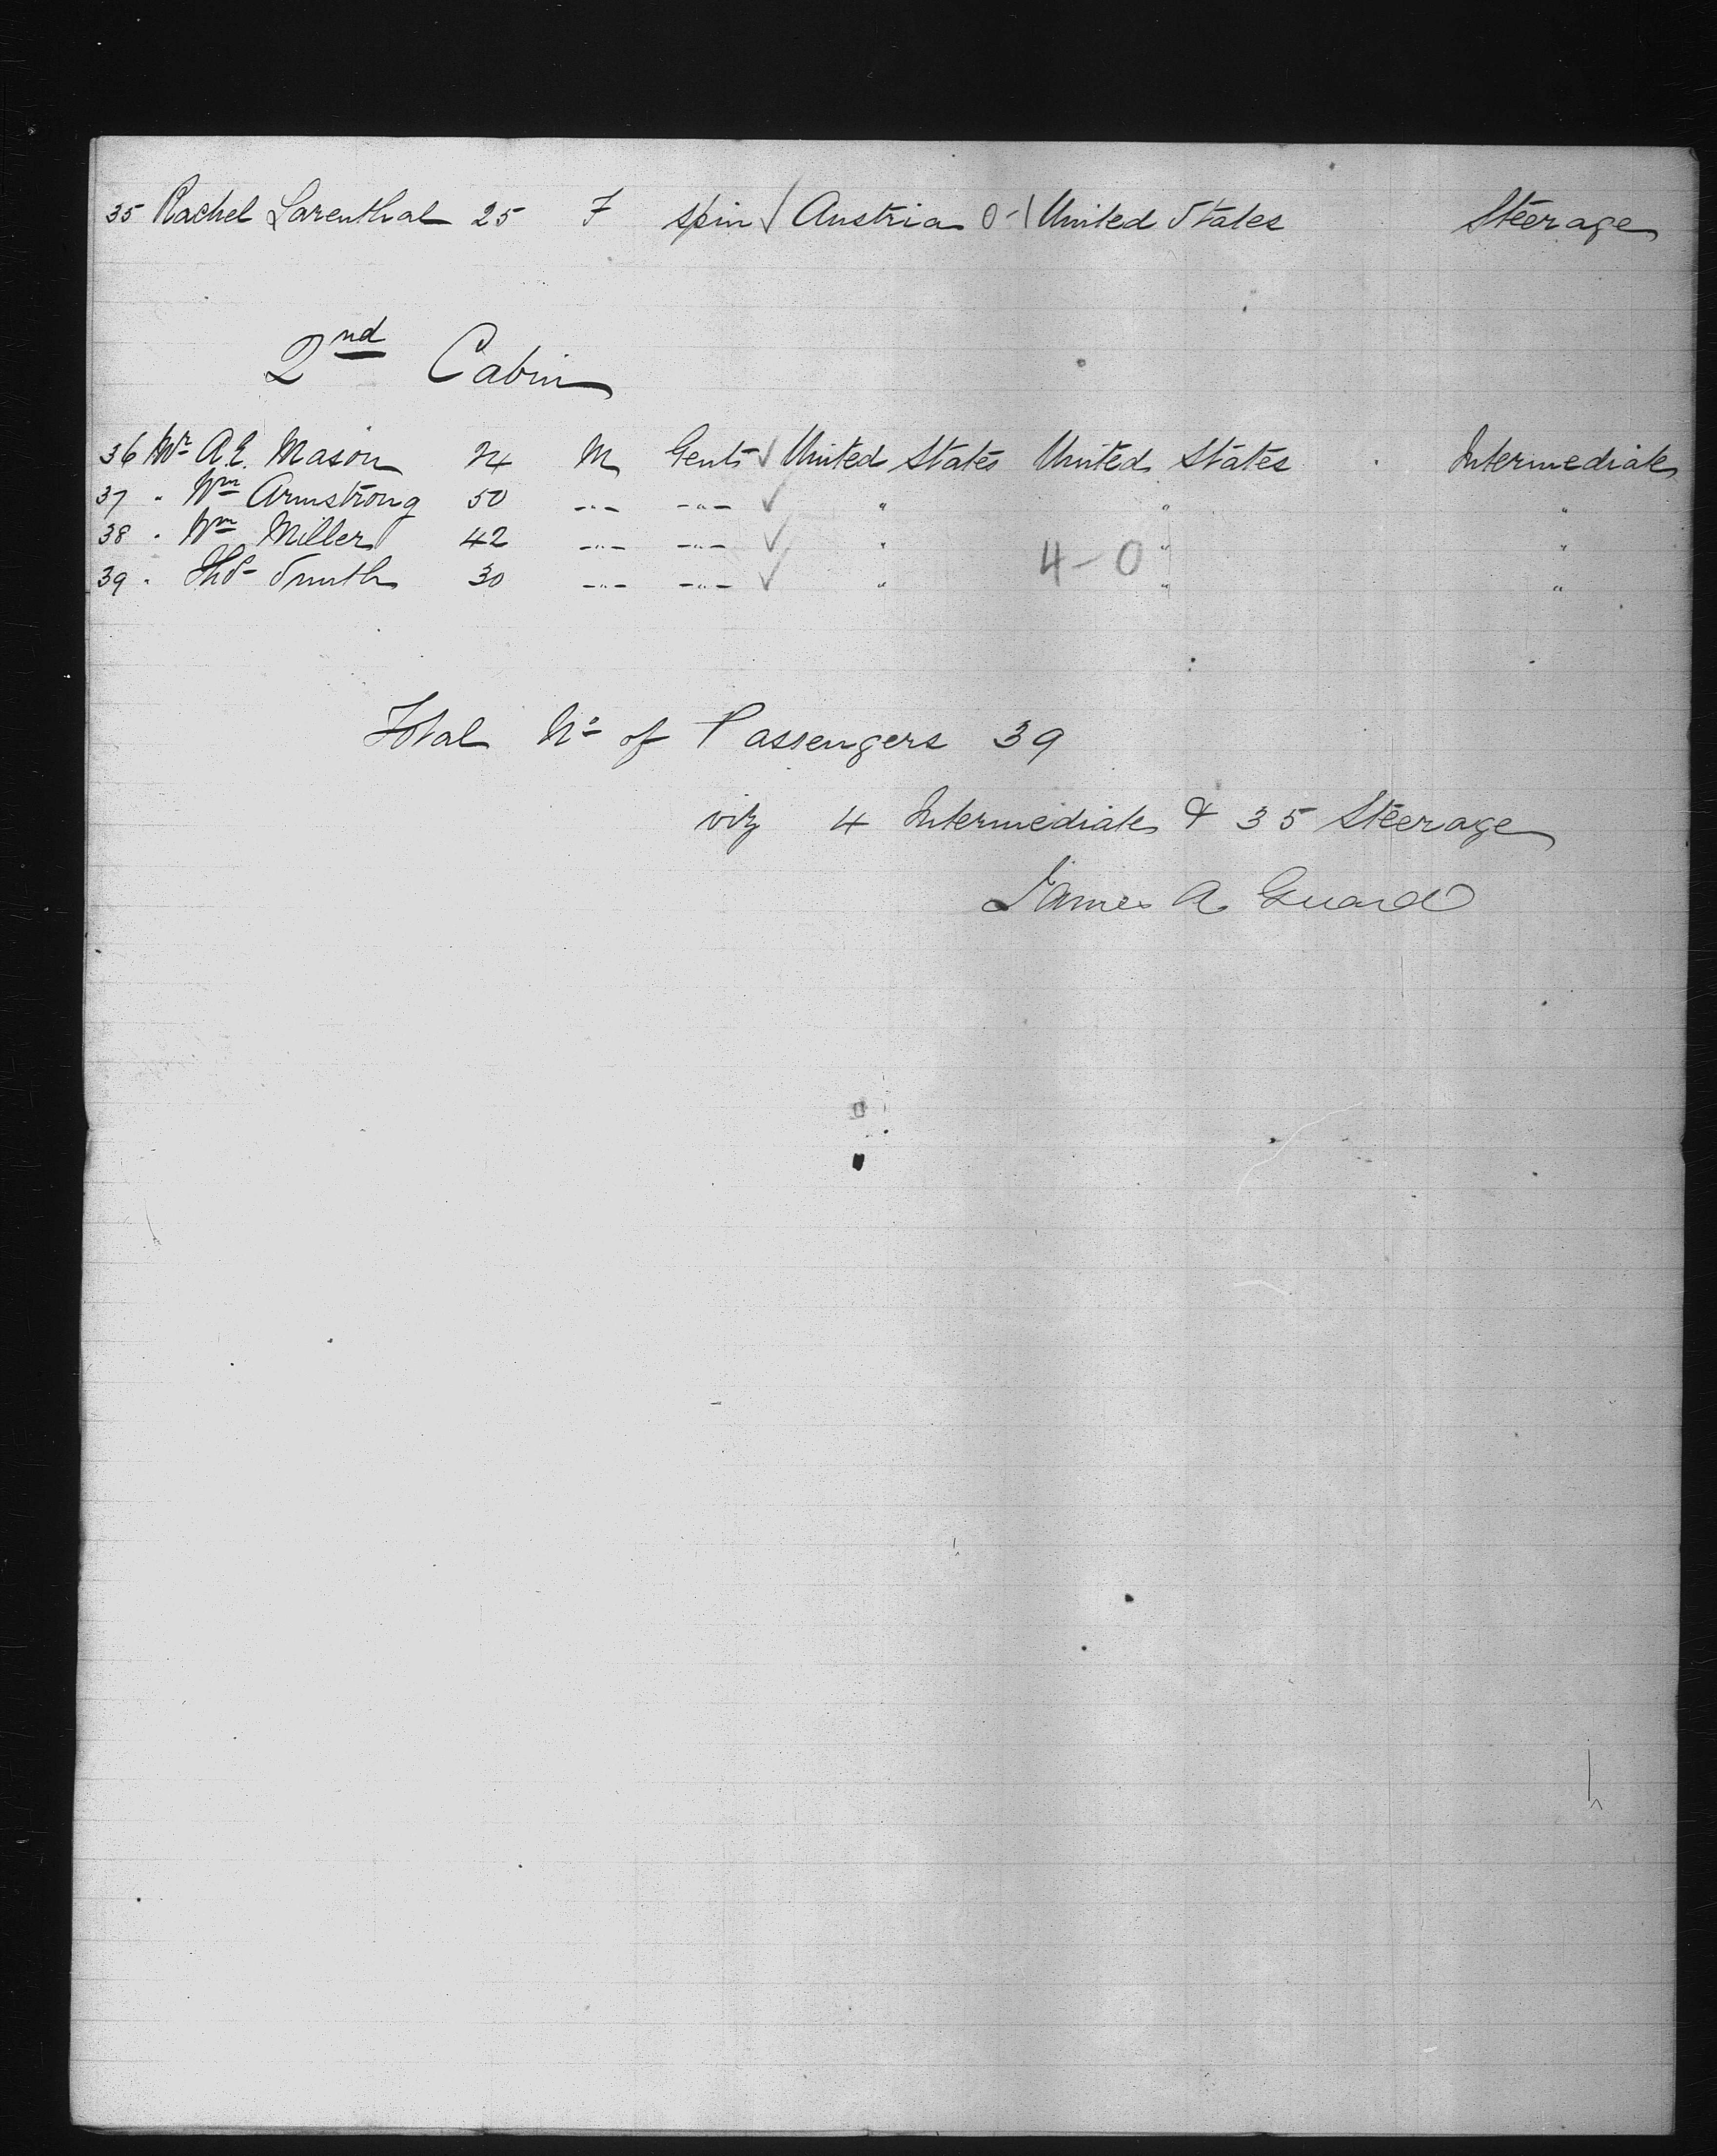 35 Rachel Larenthal 25 F spin √ Austria 0-1 United States Steerage
2nd Cabin
36 Mr A.E. Mason 24 M Gents √ United States United States Intermediate
37 " Wm Armstrong 50 -"- -"- √ " " "
38 " Wm Miller 42 -"- -"- √ " " "
4-0
39 " Thos Smith 30 -"- -"- √ " " "
Total No of Passengers 39
viz 4 Intermediate & 35 Steerage
James A Guard